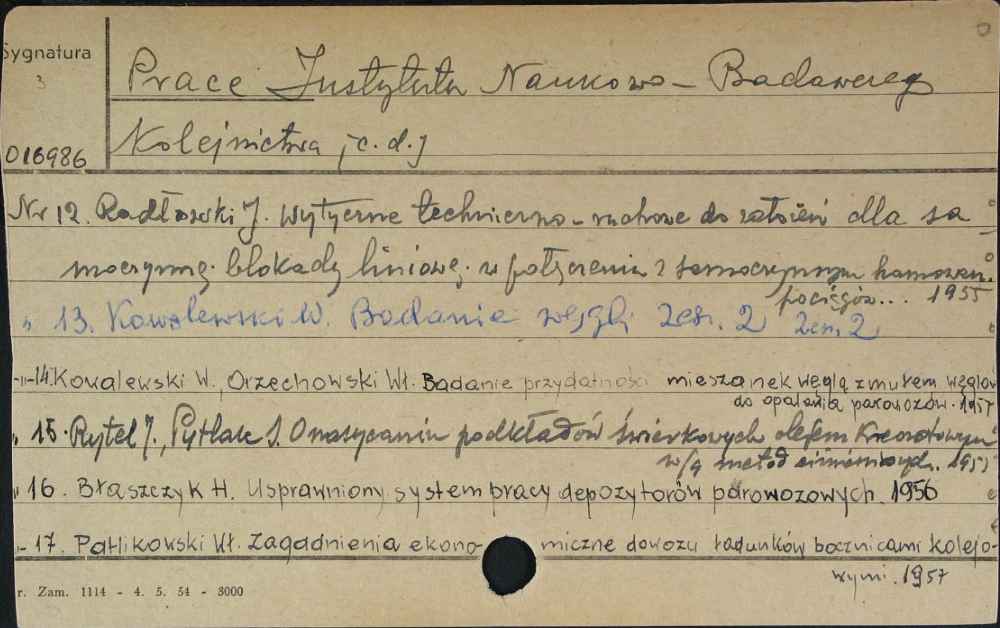 Sygnatura
3
016986
Prace Instytutu Naukowo-Badawczeg
Kolejnictwa /c.d./
Nr 12. Radłowski J. Wytyczne techniczno-ruchowe do założeń dla sa
moczynnej blokady liniowej w połączeniu z samoczynnym hamowan.
pociągów... 1955
" 13. Kowalewski W. Badanie węgli Zesz. 2 Zesz. 2
-"-14. Kowalewski W. Orzechowski Wł. Badanie przydatności mieszanek węglą z mułem węglow
do opalania parowozów. 1957
" 15. Rytel J., Pytlak S. O nasycaniu podkładów świerkowych olejem Kreozotowym
w/g metod ciśnieniowych. 1957
" 16. Błaszczyk H. Usprawniony system pracy depozytorów parowozowych. 1956
-"- 17. Patlikowski Wł. Zagadnienia ekono-miczne dowozu ładunków bocznicami kolejo-
wymi. 1957
r. Zam. 1114 - 4. 5. 54 - 3000